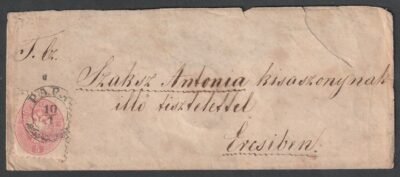 T. cz.
Szaksz Antonia kisaszonynak
illő tisztelettel
Ercsiben.
PÁPA
10